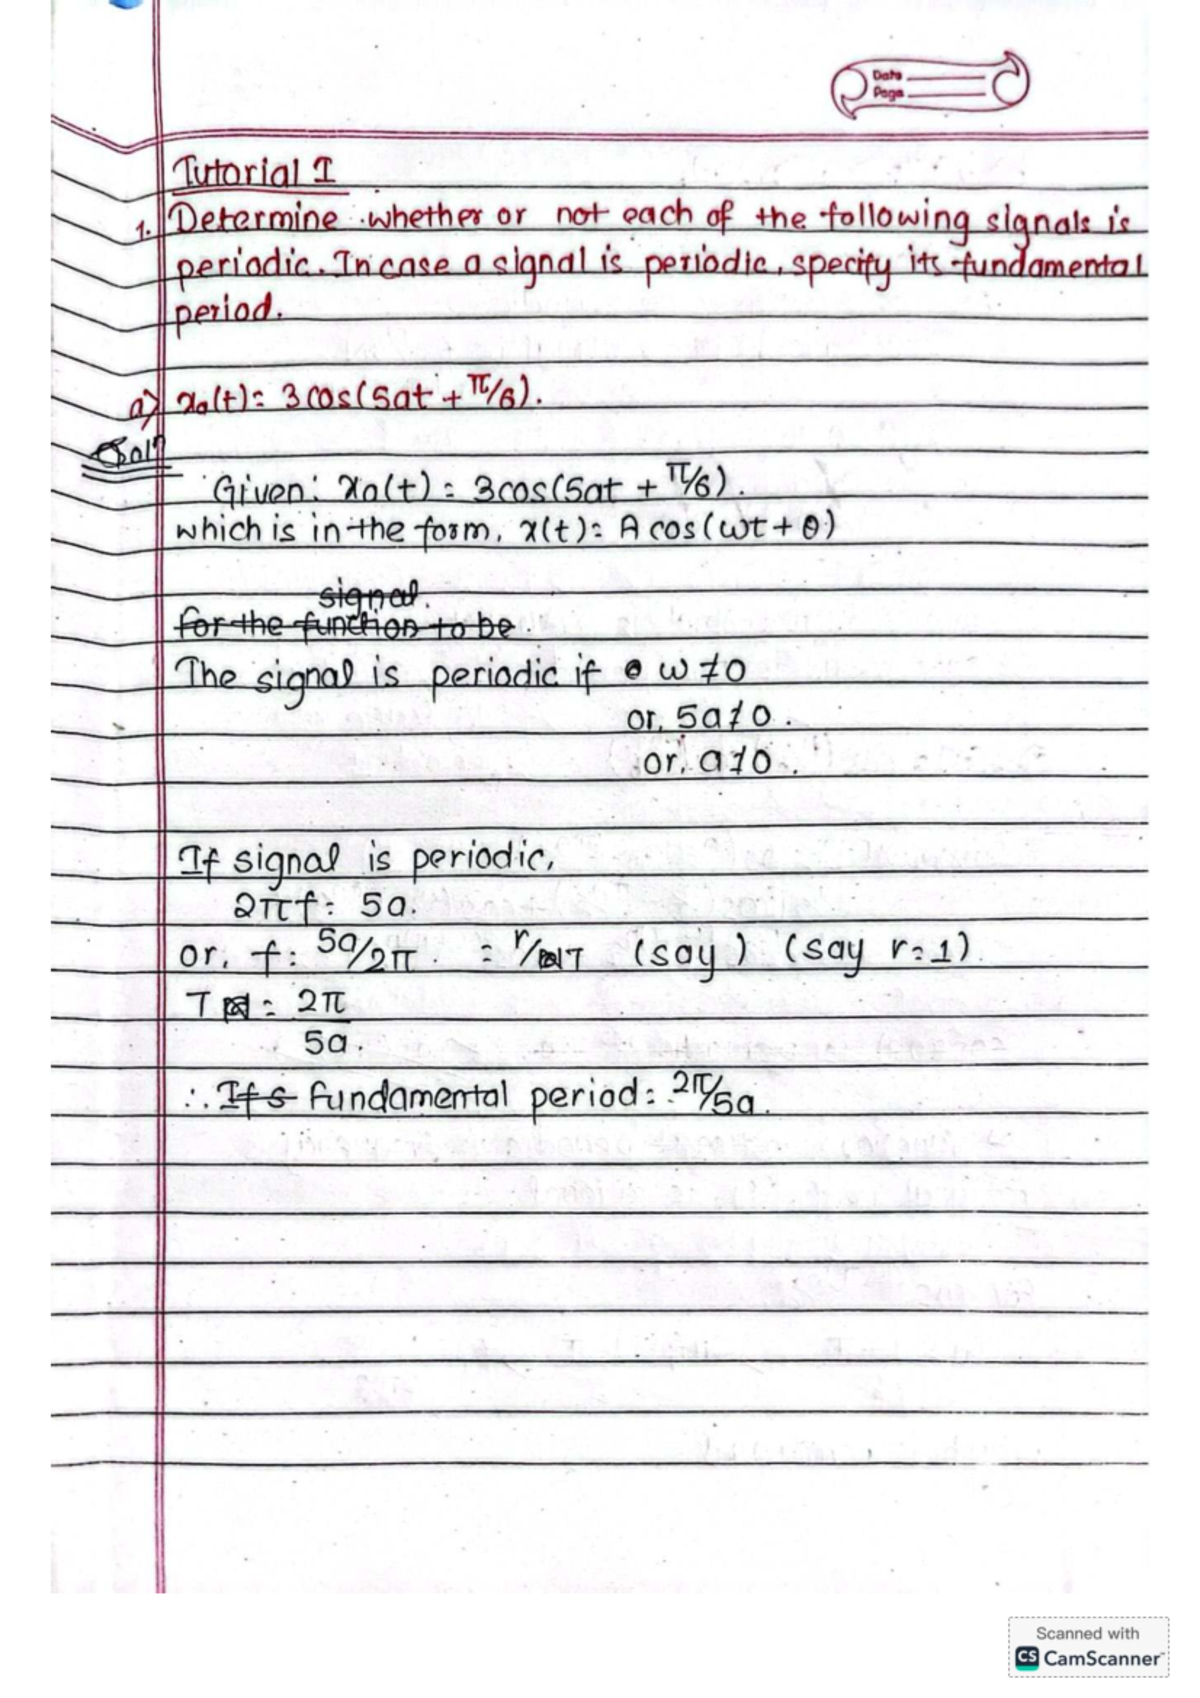 Date
Page
Tutorial I
1. Determine whether or not each of the following signals is
periodic. In case a signal is periodic, specify its fundamental
period.
a) xa(t) = 3cos(5at + π/6).
Solⁿ
Given: xa(t) = 3cos(5at + π/6).
which is in the form, x(t) = A cos(ωt + θ)
signal.
for the function to be.
The signal is periodic if ω ≠ 0
or, 5a ≠ 0.
or, a ≠ 0.
If signal is periodic,
2πf = 5a.
or, f = 5a/2π. = r/T (say) (say r=1).
T = 2π
5a.
∴ If s fundamental period = 2π/5a.
Scanned with
CS CamScanner